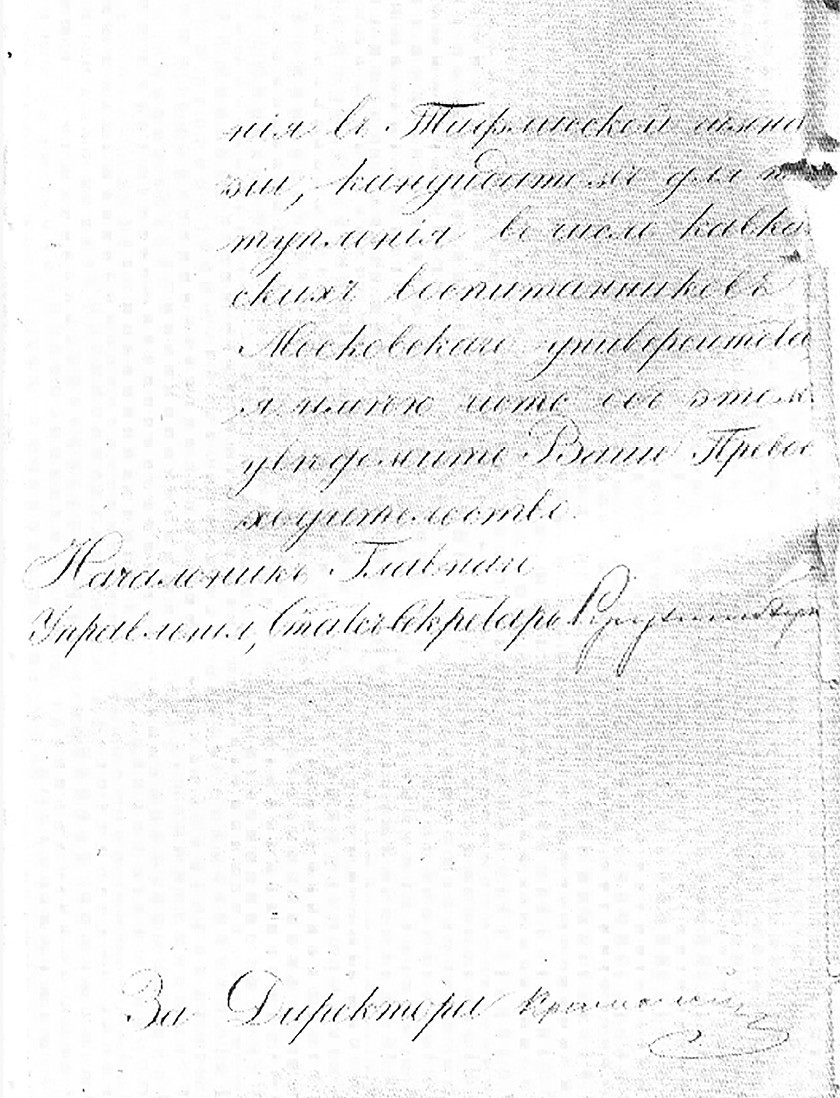 нія въ Тифлисской гимна
зіи, кандидатомъ для п
тупленія въ число кавка
скихъ воспитанниковъ
Московскаго университета
я имѣю честь объ этомъ
увѣдомить Ваше Превос
ходительство.
Начальникъ Главнаго
Управленія, Статсъ-Секретарь
За Директора